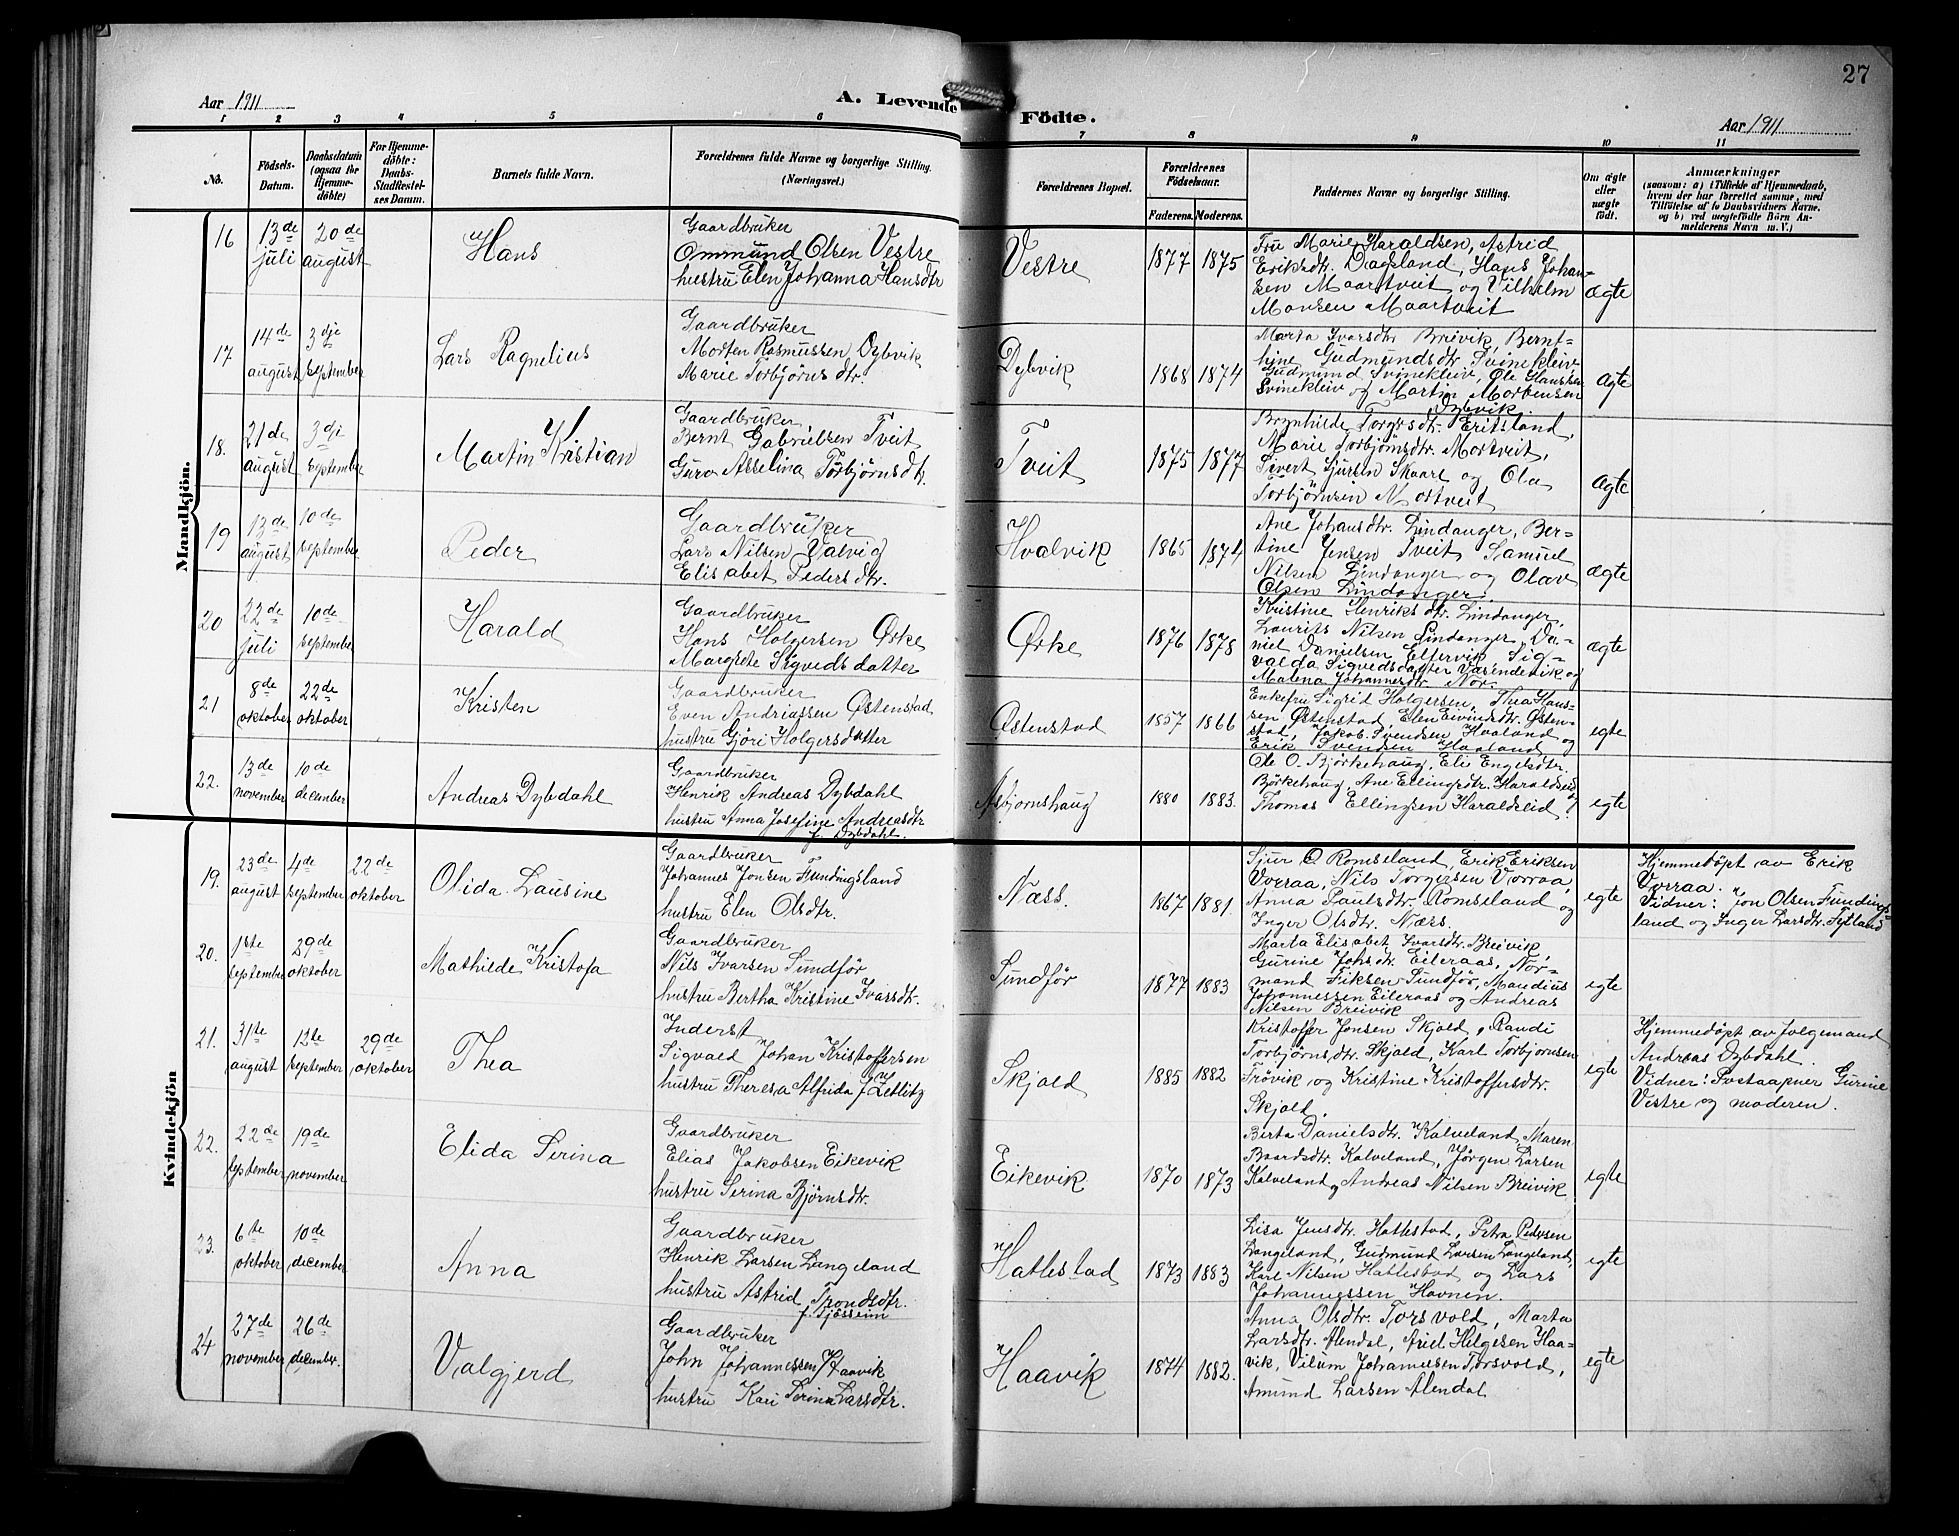 27
Aar 1911
A. Levende Födte.
Aar 1911
1 2 3 4 5 6 7 8 9 10 11
No.
Födsels-
Datum.
Daabsdatum
(ogsaa for
Hjemme-
döbte)
For Hjemme-
döbte:
Daabs-
Stadfæstel-
ses Datum.
Barnets fulde Navn.
Forældrenes fulde Navne og borgerlige Stilling.
(Næringsvei.)
Forældrenes Bopæl.
Forældrenes
Födselsaar.
Faderens. Moderens.
Faddernes Navne og borgerlige Stilling.
Om ægte
eller
uægte
födt.
Anmærkninger
(saasom: a) i Tilfælde af Hjemmedaab,
hvem der har forrettet samme, med
Tilföielse af to Daabsvidners Navne.
og b) ved uegtefödte Börn An-
melderens Navn m. V.)
Mandkjön.
16
13de
juli
20de
august
Hans
Gaardbruker
Ommund Olsen Vestre
hustru Elen Johanna Hansdtr
Vestre
1877 1875
Fru Marie Haraldsen, Astrid
Eriksdtr. Dagsland, Hans Johan-
sen Maartveit og Vilhelm
Monsen Maartveit
ægte
17
14de
august
3dje
september
Lars Ragnelius
Gaardbruker
Morten Rasmussen Dybvik
Marie Torbjørnsdtr.
Dybvik
1868 1874
Marta Ivarsdtr Breivik, Bernt-
hine Gudmundsdtr Svinekleiv
Gudmund Svinekleiv, Ole Hansen
Svinekleiv og Martin Mortensen
Dybvik.
ægte
18.
21de
august
3dje
september
Martin Kristian
Gaardbruker
Bernt Gabrielsen Tveit
Guro Asselina Torbjørnsdtr.
Tveit
1875 1877
Brynhilde Torgersdtr. Eritsland,
Marie Torbjørnsdtr. Mortveit,
Sivert Sjursen Skaare og Ola
Torbjørnsen Nortveit
ægte
19
13de
august
10de
september
Peder
Gaardbruker
Lars Nilsen Valvig
Elisabet Pedersdtr.
Hvalvik
1865 1874
Ane Johansdtr. Lindanger, Ber-
tine Jensen Tveit Samuel
Nilsen Lindanger og Olav
Olsen Lindanger.
ægte
20
22de
juli
10de
september
Harald
Gaardbruker
Hans Holgersen Ørke
Margrete Sigvedsdatter
Ørke
1876 1878
Kristine Henriksdtr. Lindanger,
Laurits Nilsen Lindanger, Da-
niel Danielsen Elfervik Sig-
valda Sigvedsdatter Vasendevik og
Malena Johannesdtr. Nor.
ægte
21
8de
oktober
22de
oktober
Kristen
Gaardbruker
Even Andriassen Østenstad
hustru Gjøri Holgersdatter
Østenstad
1857 1866
Enkefru Sigrid Holgersen, Thea Hans-
sen Østenstad, Elen Eivindsdtr. Østen-
stad, Jakob Svendsen Hvaland og
Erik Svendsen Haaland
egte
22.
13de
november
10de
december
Andreas Dybdahl
Gaardbruker
Henrik Andreas Dybdahl
hustru Anna Josefine Andreasdtr
f. Dybdahl.
Asbjørnshaug
1880 1883.
Ole O. Bjørkehaug, Eli Engelsdtr.
Börkehaug, Ane Ellingsdtr. Haraldseid og
Thomas Ellingsen Haraldseid
egte
Kvindekjön
19.
23de
august
4de
september
22de
oktober
Olida Lausine
Gaardbruker
Johannes Jonsen Fundingsland
hustru Elen Olsdtr.
Næss.
1867 1881.
Sjur O Romseland, Erik Eriksen
Vorraa, Nils Torgersen Vorraa,
Anna Paulsdtr. Romseland og
Inger Olsdtr. Næss.
egte
Hjemmedöpt av Erik
Vorraa.
Vidner: Jon Olsen Fundings-
land og Inger Larsdtr. Tytland
20.
1ste
september
29de
oktober
Mathilde Kristofa
Gaardbruker
Nils Ivarsen Sundför
hustru Bertha Kristine Ivarsdtr.
Sundför
1877 1883
Marta Elisabet Ivarsdtr. Breivik,
Gurine Johsdtr. Eileraas, Nor-
mand Fiksen Sundför, Mandius
Johannessen Eileraas og Andreas
Nilsen Breivik
egte
21.
31te
august
12te
september
29de
oktober
Thea
Inderst
Sigvald Johan Kristoffersen
hustru Theresa Alfrida f. Zetlitz
Skjold
1885 1882
Kristoffer Jonsen Skjold, Randi
Torbjørnsdtr. Skjold, Karl Torbjørnsen
Trövik og Kristine Kristoffersdtr.
Skjold.
egte
Hjemmedöpt av folgemand
Andreas Dybdahl.
Vidner: Postaapner Gurine
Vestre og moderen.
22.
22de
september
19de
november
Elida Serina
Gaardbruker
Elias Jakobsen Eikevik
hustru Serina Bjørnsdtr.
Eikevik
1870 1873
Berta Danielsdtr. Kalveland, Maren
Baardsdtr. Kalveland, Jørgen Larsen
Kalveland og Andreas Nilsen Breivik
egte
23.
6te
oktober
10de
december
Anna
Gaardbruker
Henrik Larsen Langeland
hustru Astrid Trondsdtr.
f. Tjösseim
Hattestad
1873 1883
Lisa Jensdtr. Hattestad, Petra Pedersen
Langeland, Gudmund Larsen Langeland,
Karl Nilsen Hattestad og Lars
Johannessen Hovnen.
egte
24
27de
november
26de
december.
Valgjerd
Gaardbruker
John Johannessen Haavik
hustru Kari Serina Larsdtr.
Haavik
1874 1882.
Anna Olsdtr. Torsvold, Marta
Larsdtr. Alendal, Arid Helgesen Haa-
vik, Vilum Johannesen Torsvold,
Amund Larsen Alendal
egte